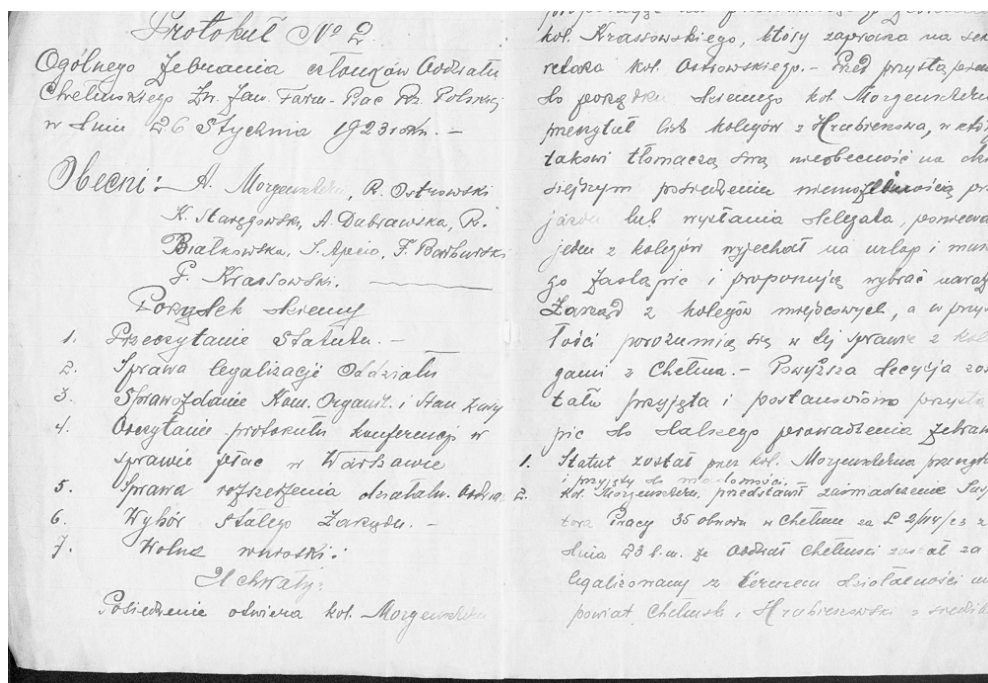 Protokuł No 2
Ogólnego Zebrania członków Oddziału
Chełmskiego Zw. Zaw. Farm. Prac. Rz. Polskiej
w dniu 26 Stycznia 1923 roku. –
Obecni: A. Morgensztern, R. Ostrowski
K. Staręgowski, A. Dubrawska, R.
Białkowska, S. Apcio, F. Barburski
G. Krassowski.
Porządek dzienny
1. Przeczytanie Statutu. –
2. Sprawa legalizacji Oddziału
3. Sprawozdanie Kom. Organiz. i Stan Kasy
4. Odczytanie protokułu konferencji w
sprawie płac w Warszawie
5. Sprawa rozszerzenia działaln.
6. Wybór stałego Zarządu. –
7. Wolne wnioski:
Uchwały:
Posiedzenie otwiera kol. Morgensztern
kol. Krassowskiego, który zaprasza na sek
retarza kol. Ostrowskiego. – Przed przystąpieniem
do porządku dziennego kol. Morgensztern
przeczytał list kolegów z Hrubieszowa, w któ
takowi tłomaczą swą nieobecność na dzi
siejszym posiedzeniu niemożliwością prz
jazdu lub wysłania delegata, ponieważ
jeden z kolegów wyjechał na urlop i mus
go zastąpić i proponują wybrać naraz
Zarząd z kolegów miejscowych, a w przy-
łości porozumią się w tej sprawie z kole
gami z Chełma. – Powyższa decyzja zos
tała przyjęta i postanowiono przystą
pić do dalszego prowadzenia zebran
1. Statut został przez kol. Morgenszterna przeczyt
i przyjęty do wiadomości. –
2. Kol. Morgensztern przedstawił zaświadczenie Insp
tora Pracy 35 obwodu w Chełmie za L 2/IV/23 z
dnia 23 b.m. że Oddział Chełmski został za
legalizowany z terenem działalności na
powiat Chełmski i Hrubieszowski z siedzib